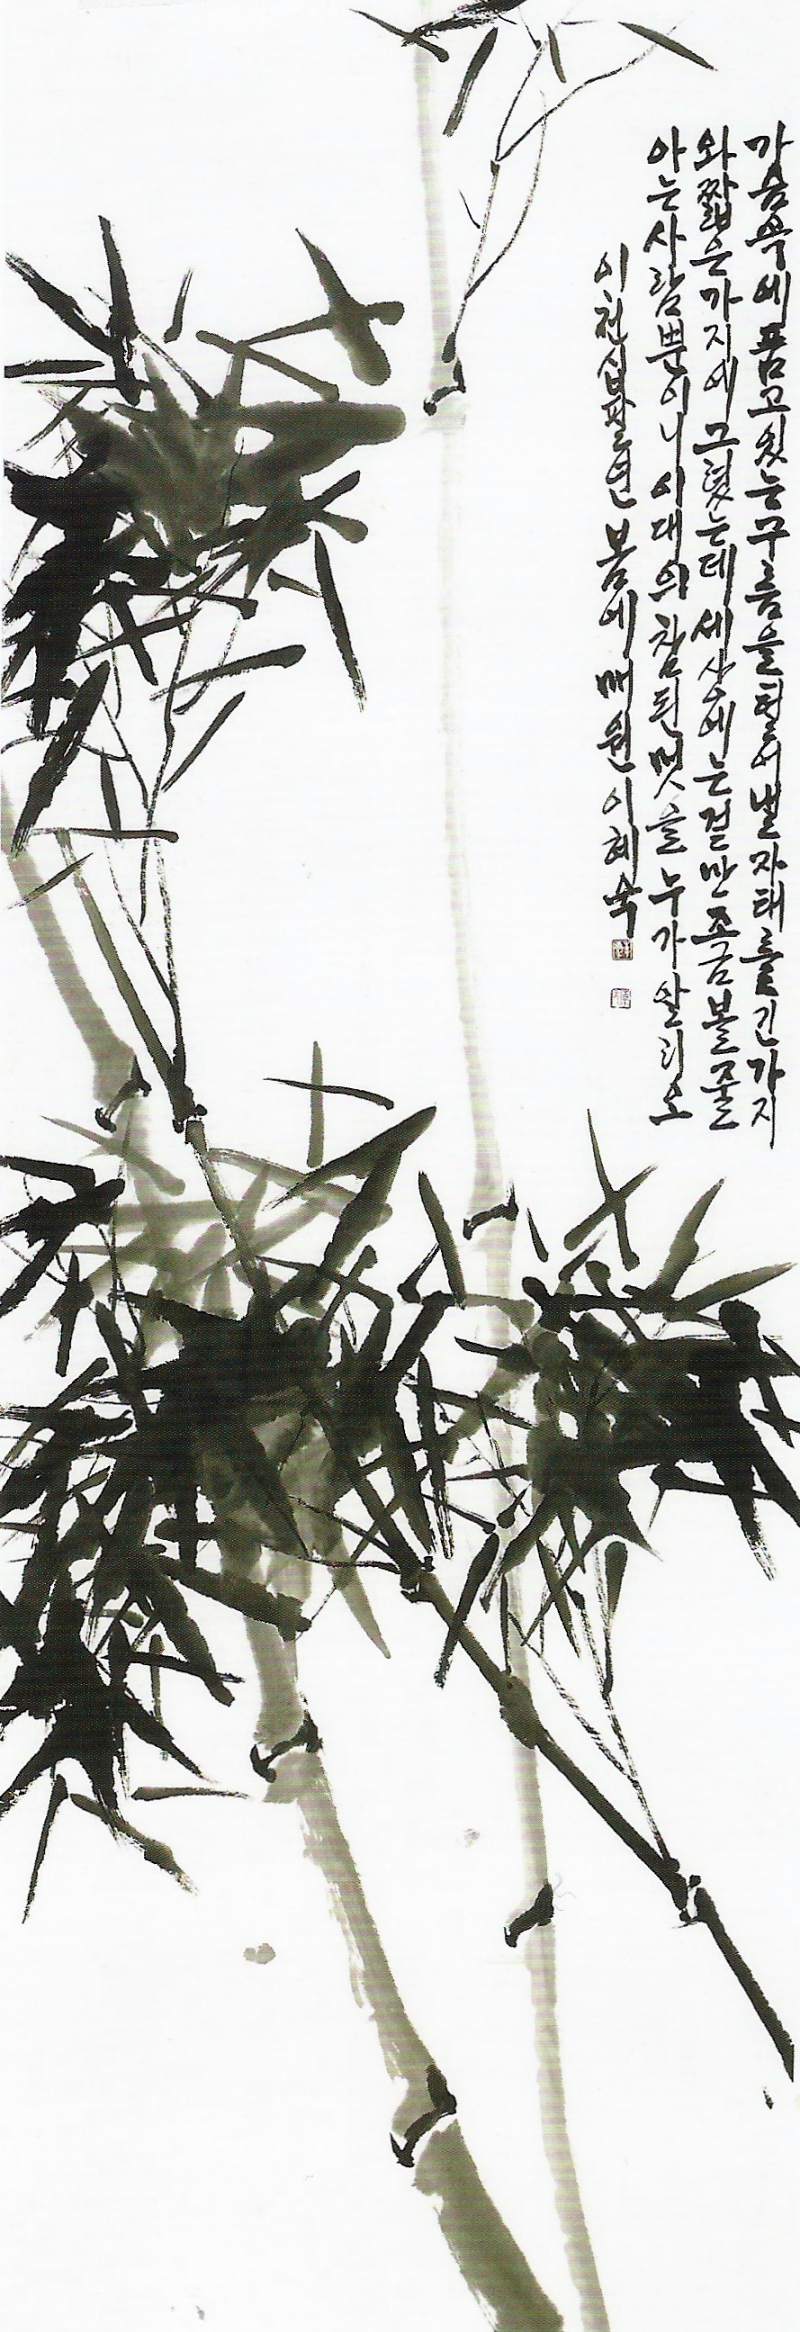 가슴속에 품고 있는 구름을 헌들어 낼 자태를 긴 가지
와 짧은 가지에 그렸는데 세상에는 겉만 조금 볼 줄
아는 사람뿐이니 이 대의 참된 멋을 누가 알리오
이천십팔년 봄에 매원 이혜숙